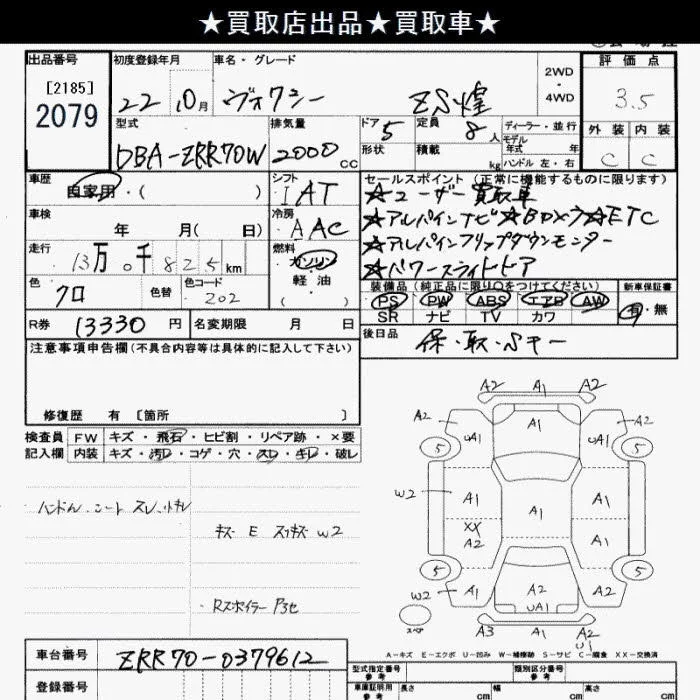 ★買取店出品★買取車★
出品番号 初度登録年月 車名・グレード 評価点
[2185]
2079 22 10月 ヴォクシー ZS煌 2WD・4WD 3.5
型式 排気量 ドア 定員 ディーラー・並行 外装 内装
DBA-ZRR70W 2000cc 5 8人 モデル年式 年 C C
形状 積載 kg ハンドル 左・右
車歴 シフト セールスポイント (正常に機能するものに限ります)
自家用・( ) IAT ★ユーザー買取車
車検 冷房 ★アルパインナビ★BDカラ★ETC
年 月( 日) AAC ★アルパインフリップダウンモニター
走行 燃料 ★パワースライドドア
13万0千825km ガソリン
軽油
・( )
色 色替 色コード 装備品 (純正品に限り○をつけてください) 新車保証書
クロ 202 PS PW ABS エアB AW 有・無
SR ナビ TV カワ
R券 13330円 名変期限 月 日 後日品 保・取・Sキー
注意事項申告欄(不具合内容等は具体的に記入して下さい)
修復歴 有 [箇所 ]
検査員 FW キズ・飛石・ヒビ割・リペア跡・×要
記入欄 内装 キズ・汚レ・コゲ・穴・スレ・キレ・破レ
ハンドル・シート スレ・小キレ
キズ E スリキズ W2
Rスポイラー
A2 A1 A2
A2 UA1 A1 UA1 A2
5 5
W2 A1 A1 A1
XX
A2 A1
5 5
W2 A1 A2 A2
UA1
スペア A3 A2 A2
U1
A-キズ E-エクボ U-凹み W-補修跡 S-サビ C-腐食 XX-交換済
車台番号 ZRR70-0379612 型式指定番号 参考 類別区分番号 参考
登録番号 車庫証明用 参考 長さ cm 幅 cm 高さ cm